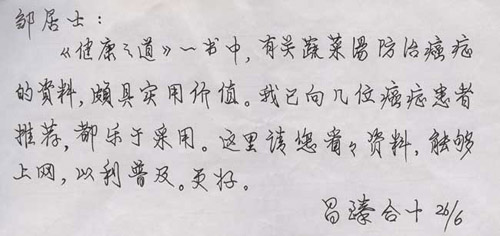 邹居士：
《健康之道》一书中，有关蔬菜汤防治癌症
的资料，颇具实用价值。我已向几位癌症患者
推荐，都乐于采用。这里请您看々资料，能够
上网，以利普及。更好。
昌臻合十 26/6